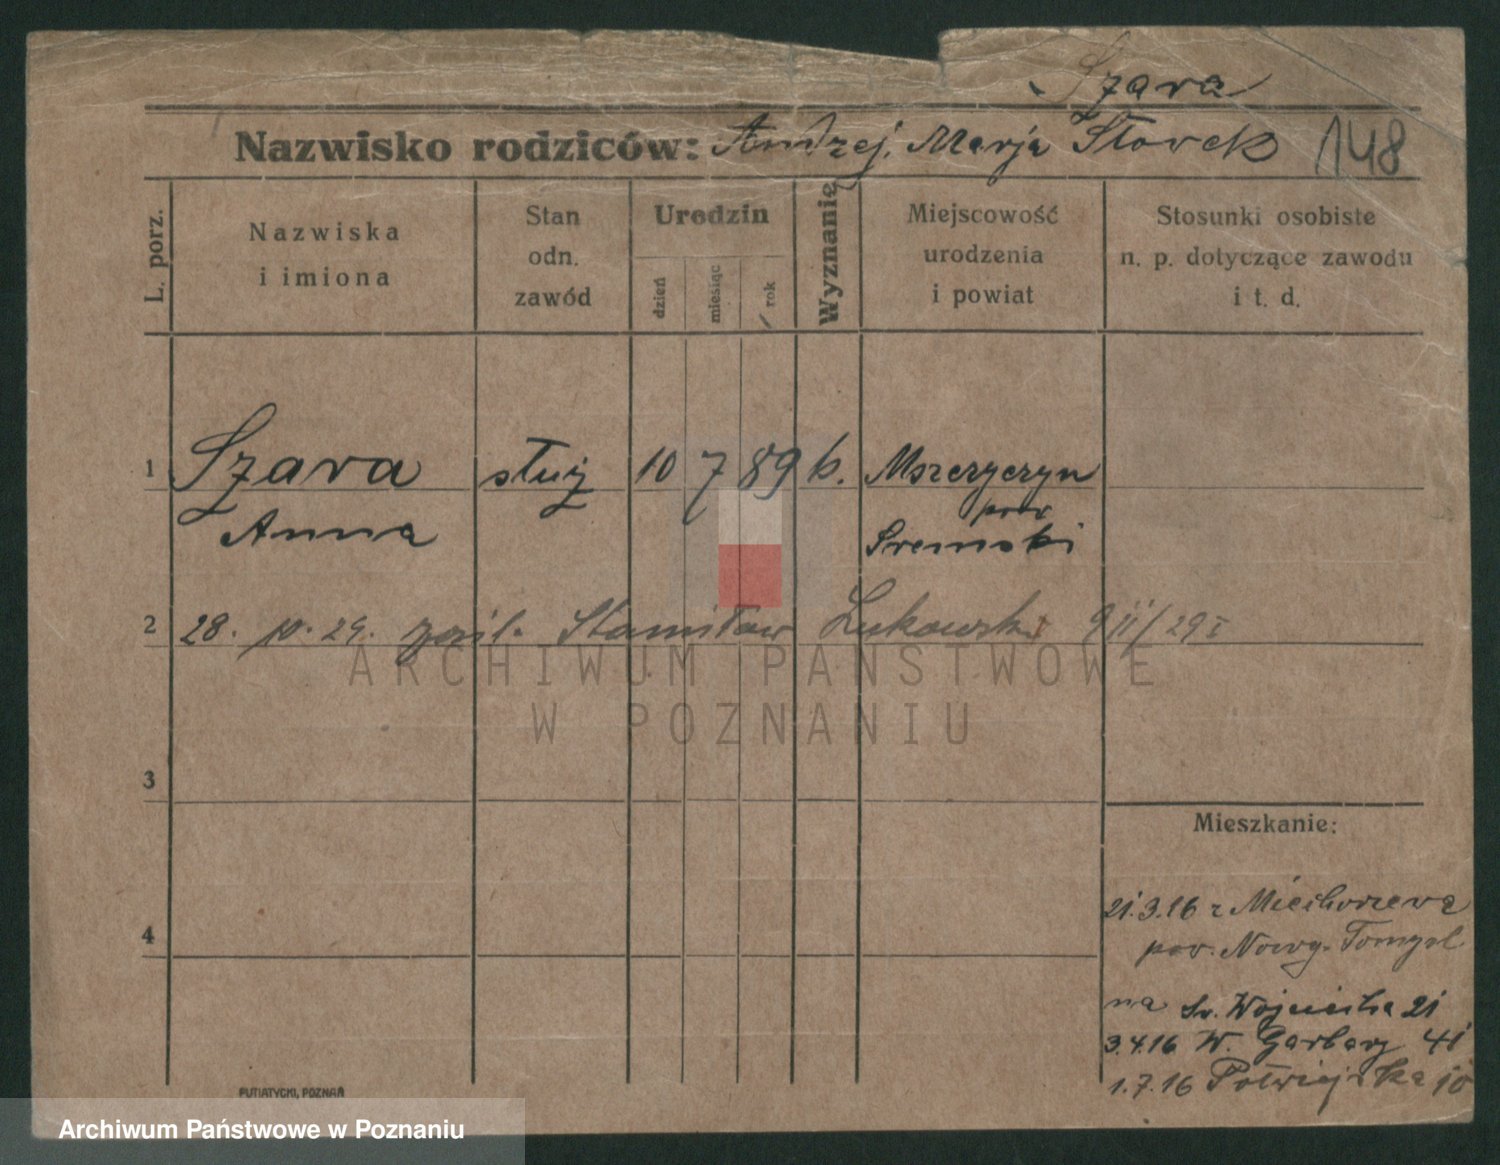 Szara
Nazwisko rodziców: Andrzej, Marja Storek 148
L. porz.
Nazwiska
i imiona
Stan
odn.
zawód
Urodzin
dzień
miesiąc
rok
Wyznanie
Miejscowość
urodzenia
i powiat
Stosunki osobiste
n. p. dotyczące zawodu
i t. d.
1 Szara służ 10 7 89 k.
Anna
pow
Sremski
2 28. 10. 29. Stanisław Lukowski
ARCHIWUM PAŃSTWOWE
W POZNANIU
3
Mieszkanie:
4
21.3.16 z
pow. Nowy-Tomysl
na Sw. Wojciecha 21
3.4.16 W. Garbary 41
1.7.16 Półwiejska 10
PUTIATYCKI, POZNAŃ
Archiwum Państwowe w Poznaniu